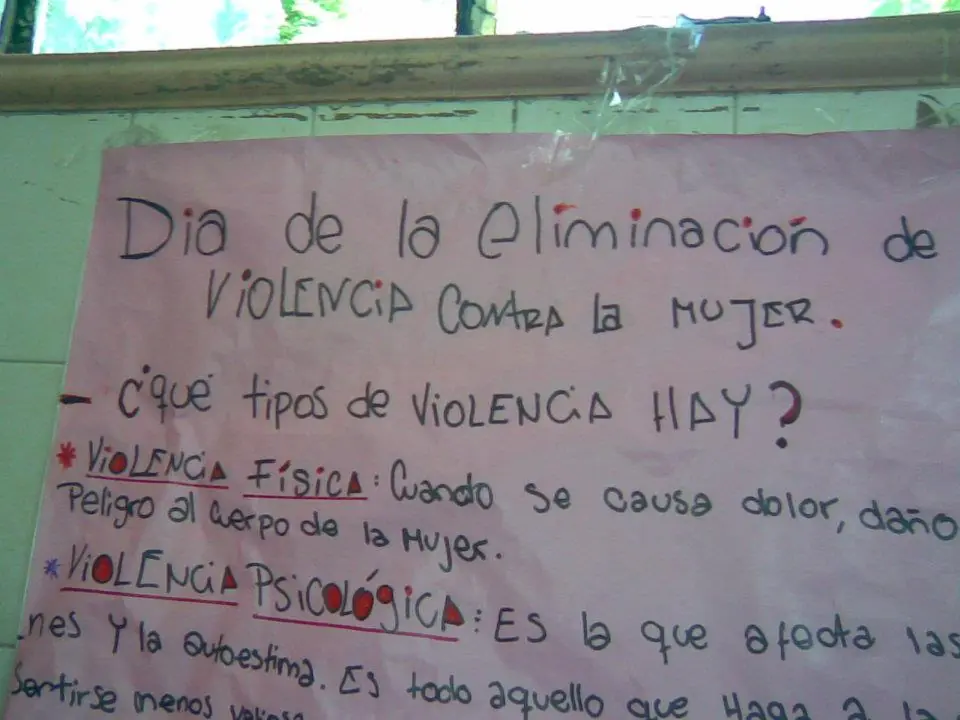 Dia de la eliminación de
VIOLENCIA CONTRA la MUJER.
- ¿que tipos de VIOLENCIA HAY?
* VIOLENCIA FÍSICA: Cuando se causa dolor, daño
Peligro al cuerpo de la Mujer.
* VIOLENCIA PSICOLÓGICA: ES la que afecta las
nes Y la autoestima. ES todo aquello que Haga a la
Sentirse menos valiosa